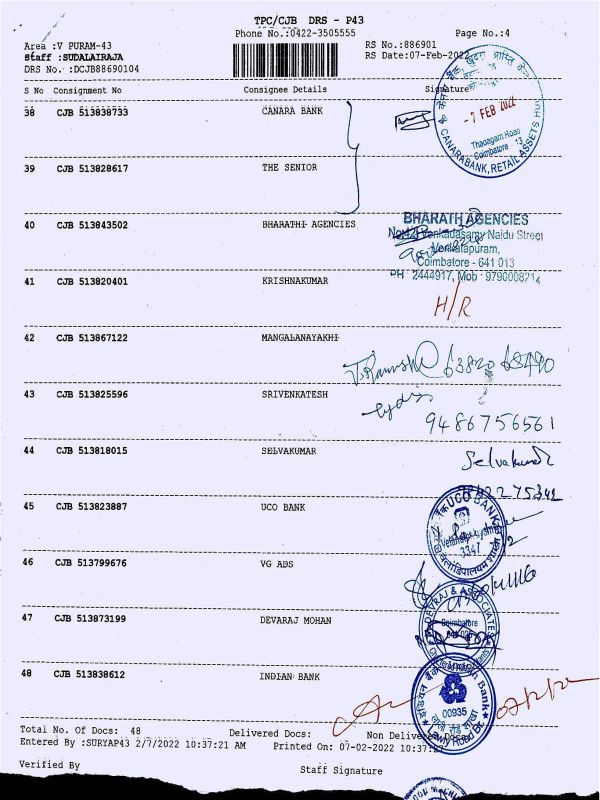 TPC/CJB DRS - P43
Phone No.:0422-3505555
Page No.:4
Area :V PURAM-43
Staff :SUDALAIRAJA
DRS No. :DCJB88690104
RS No.:886901
RS Date:07-Feb-2022
S No Consignment No Consignee Details Signature
38 CJB 513838733 CANARA BANK
- 7 FEB 2022
Thadagam Road
Coimbatore - 13
CANARABANK, RETAIL ASSETS HUB
39 CJB 513828617 THE SENIOR
40 CJB 513843502 BHARATHI AGENCIES
BHARATH AGENCIES
Venkadasamy Naidu Street
Venkatapuram,
Coimbatore - 641 013
PH : 2444917, Mob : 979000821
41 CJB 513820401 KRISHNAKUMAR
H/R
42 CJB 513867122 MANGALANAYAKHI
43 CJB 513825596 SRIVENKATESH
9486756561
44 CJB 513818015 SELVAKUMAR
Selvakumar
45 CJB 513823887 UCO BANK
UCO BANK
3347
46 CJB 513799676 VG ABS
47 CJB 513873199 DEVARAJ MOHAN
DEVRAJ & ASSOCIATES
Coimbatore
48 CJB 513838612 INDIAN BANK
इंडियन बैंक
Indian Bank
00935
Lawly Road Br.
Total No. Of Docs: 48 Delivered Docs: Non Delivered Docs:
Entered By :SURYAP43 2/7/2022 10:37:21 AM Printed On: 07-02-2022 10:37:2
Verified By
Staff Signature